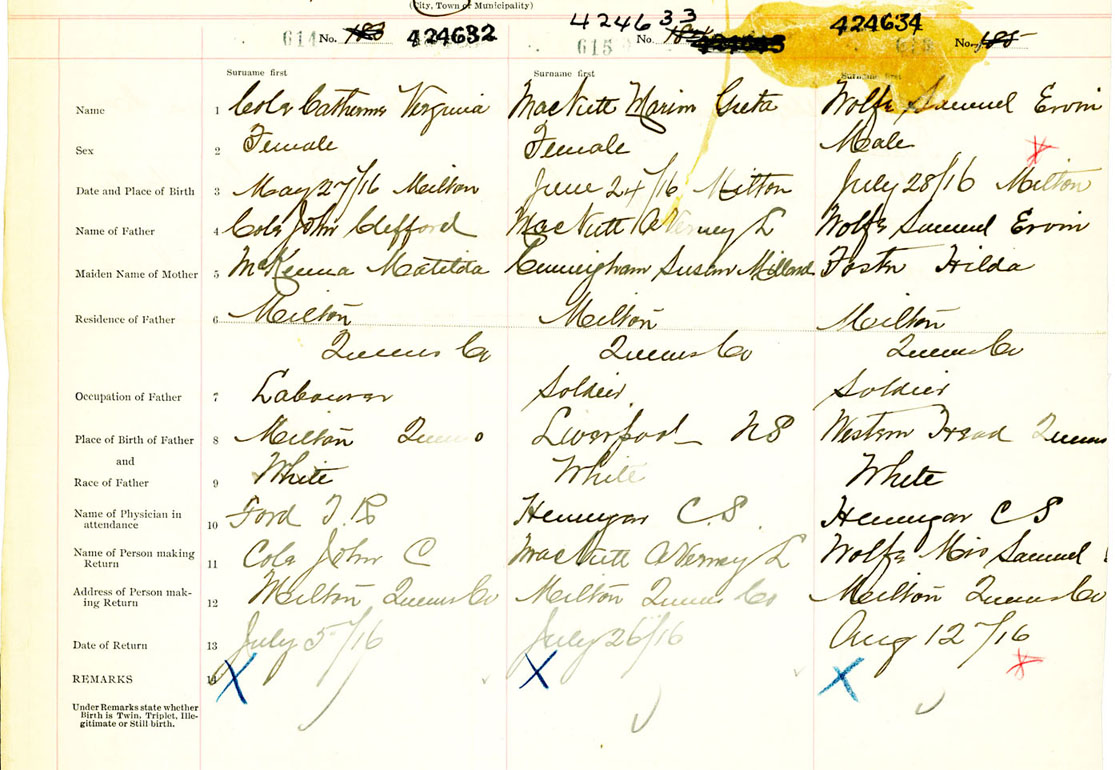 (City, Town or Municipality)
614 No. 183 424632
424633
615 No.
424634
No. 185
Surname first Surname first Surname first
Name 1 Cole Catherine Verginia MacNutt Marion Greta Wolfe Samuel Ervin
Sex 2 Female Female Male
Date and Place of Birth 3 May 27/16 Milton June 24/16 Milton July 28/16 Milton
Name of Father 4 Cole John Clifford MacNutt L Wolfe Samuel Ervin
Maiden Name of Mother 5 McKenna Matilda Cunningham Susan Millard Foster Hilda
Residence of Father 6 Milton Milton Milton
Queens Co Queens Co Queens Co
Occupation of Father 7 Labourer Soldier Soldier
Place of Birth of Father 8 Milton Queens Liverpool NS Western Head Queens
and
Race of Father 9 White White White
Name of Physician in
attendance 10 Ford T. R Hennigar C.S. Hennigar C S
Name of Person making
Return 11 Cole John C MacNutt L Wolfe Mrs Samuel
Address of Person mak-
ing Return 12 Milton Queens Co Milton Queens Co Milton Queens Co
Date of Return 13 July 5/16 July 26/16 Aug 12/16
REMARKS 14 X X X
Under Remarks state whether
Birth is Twin, Triplet, Ille-
gitimate or Still birth.